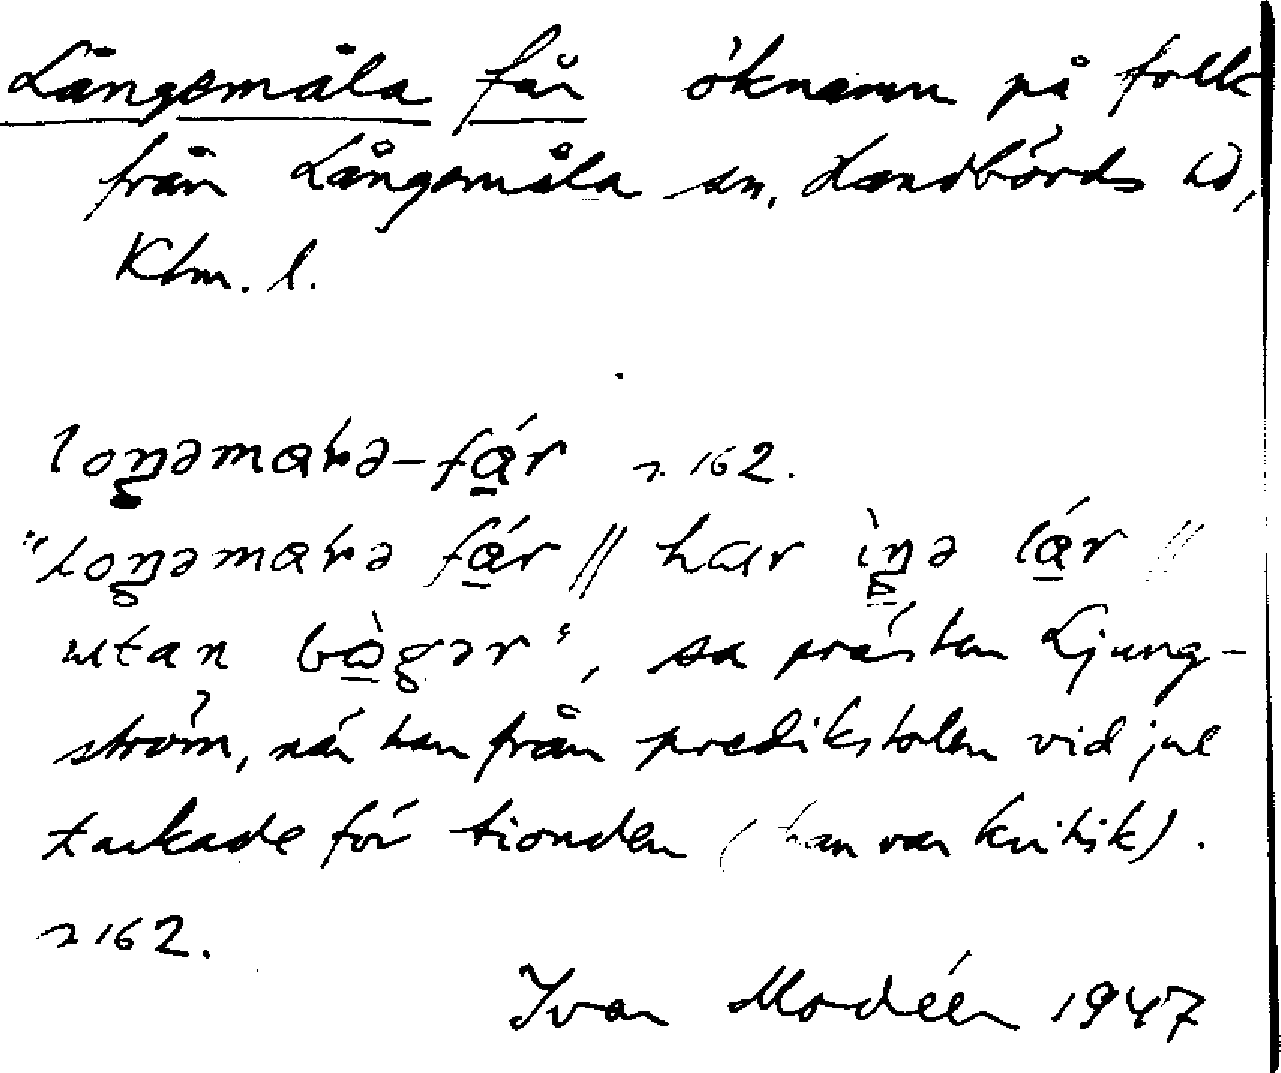 Långemåla får öknamn på folk
från Långemåla sn, Handbörds hd,
Klm. l.
loŋəmaɽə-fár s. 162.
"Loŋəmaɽə fár // har ìŋə lár //
utan bògər", sa prästen Ljung-
ström, när han från predikstolen vid jul
tackade för tionden (han var kritisk).
s 162.
Ivar Modéer 1947